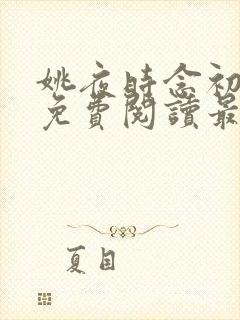 姚夜時念初
免費閱讀最
夏目